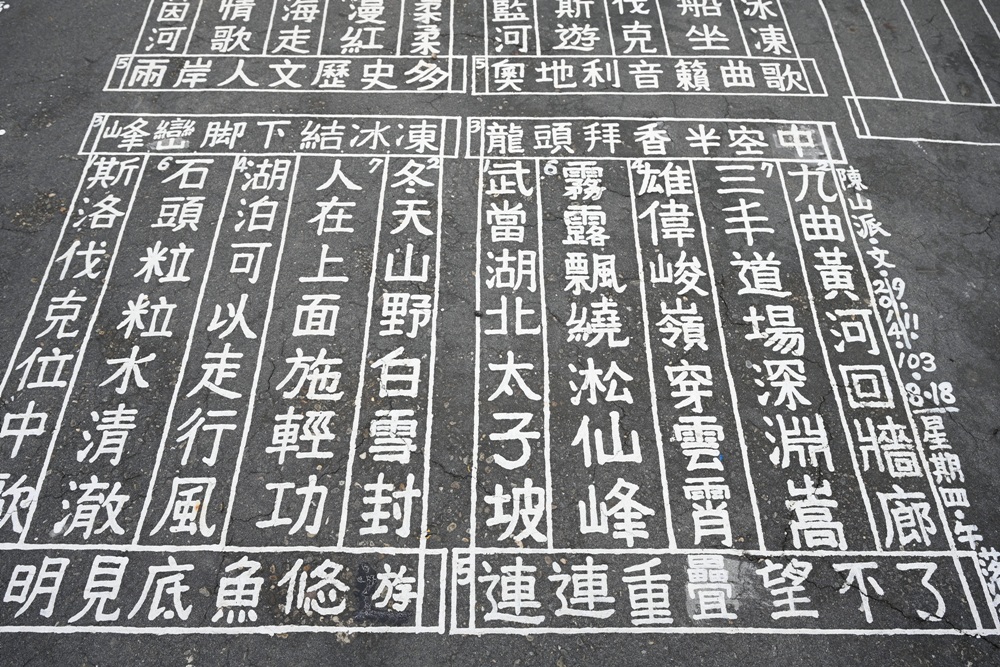 冰凍
船坐
伐克
斯遊
藍河
5奧地利音籟曲歌
柔柔
漫紅
海走
情歌
茵河
5兩岸人文歷史多
陳山派·文·2014.9.11.
103.8.18
星期四·午
3龍頭拜香半空中
2九曲黃河回牆廊
7三丰道場深淵嵩
4雄偉峻嶺穿雲霄
6霧露飄繞淞仙峰
1武當湖北太子坡
5連連重疊望不了
3峰巒脚下結冰凍
2冬天山野白雪封
7人在上面施輕功
4湖泊可以走行風
6石頭粒粒水清澈
1斯洛伐克位中歐
明見底魚悠游